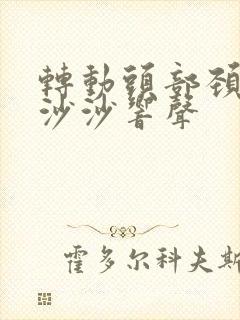 轉動頭部頚
沙沙響聲
霍多尔科夫斯